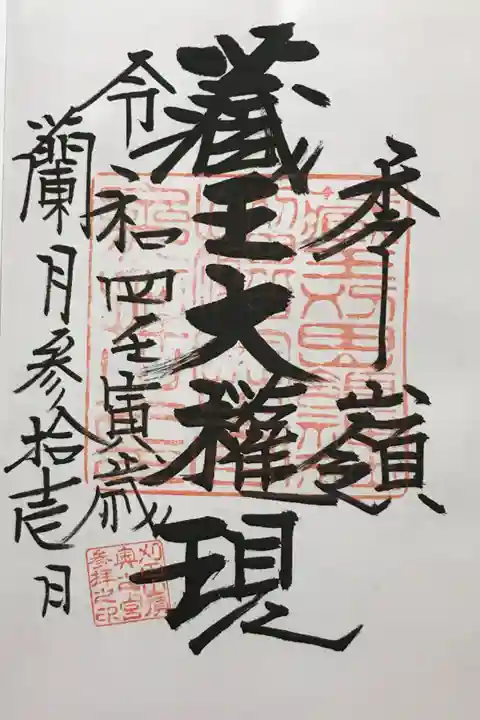 秀嶺
藏王大權現
令和四壬寅歳
蘭月参拾壱日
刈田嶺
奥之宮
参拝之印